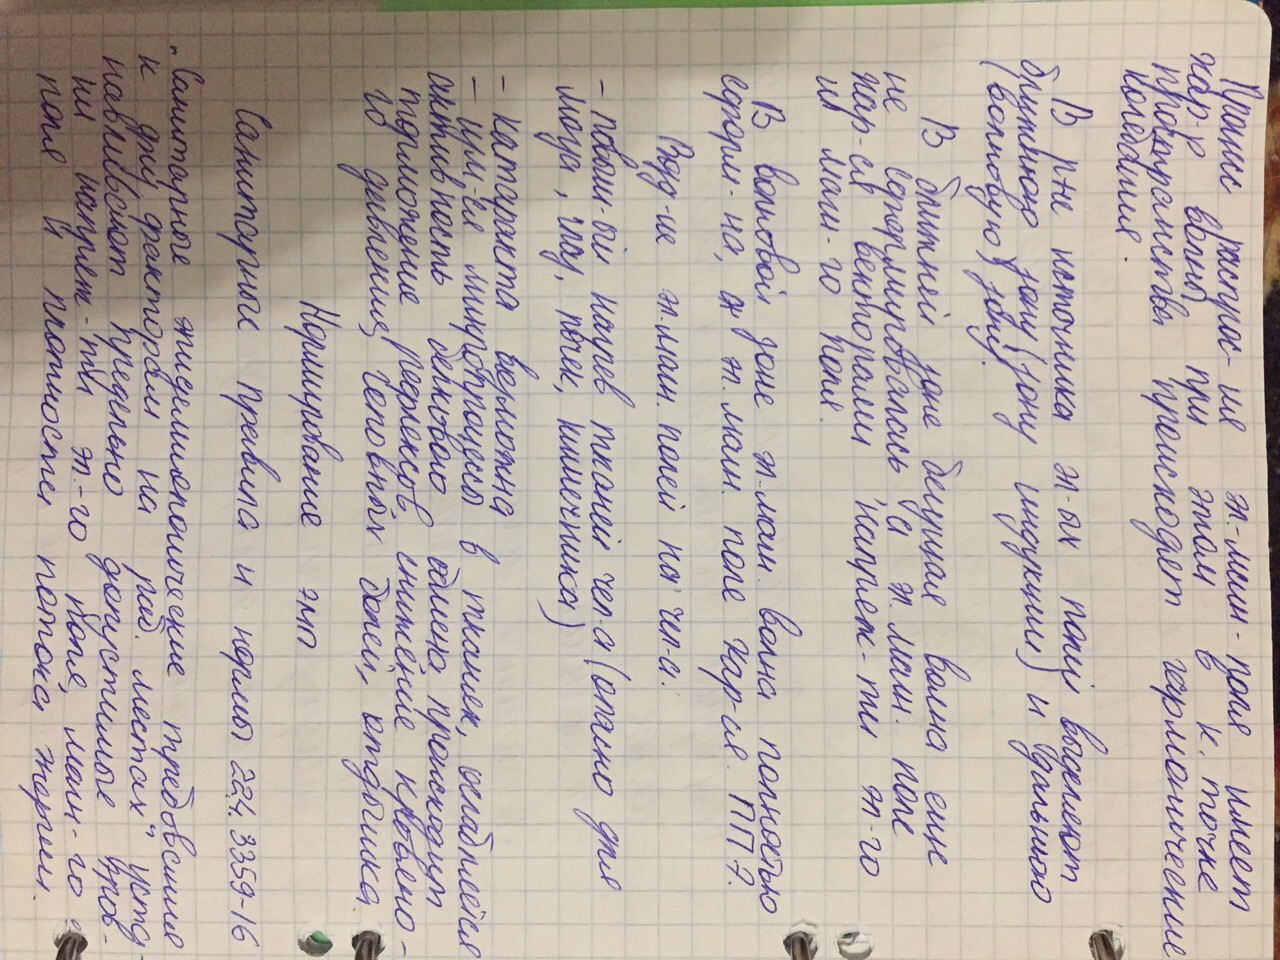 Процесс распрос-ия эл.-магн-поля имеет
хар-р волны, при этом в к. точке
пространства происходят гармонические
колебания.
В р-не источника эл-ых полей выделяют
ближнюю зону (зону индукции) и дальнюю
(волновую) зону.
В ближней зоне бегущая волна еще
не сформировалась, а эл. магн. поле
хар-ся векторами напряж-ти эл-го
и магн-го поля.
В волновой зоне эл.магн. волна полностью
сформ-на, а эл. магн. поле хар-ся ППЭ.
Возд-ие эл.магн. полей на чел-а.
- повыш-ый нагрев тканей чел-а (опасно для
мозга, глаз, почек, кишечника)
- катаракта возможна
- изм-ся микропроцессы в тканях, ослабляется
активность белкового обмена, происходит
торможение рефлексов, снижение кровяно-
го давления, головных болей, отдышка.
Нормирование ЭМП
Санитарные правила и нормы 2.2.4. 3359-16
"Санитарные эпидемиологические требования
к физ. факторам на раб. местах" уста-
навливают предельно допустимые уров-
ни напряж-ти эл-го поля, магн-го
поля и плотности потока энергии.